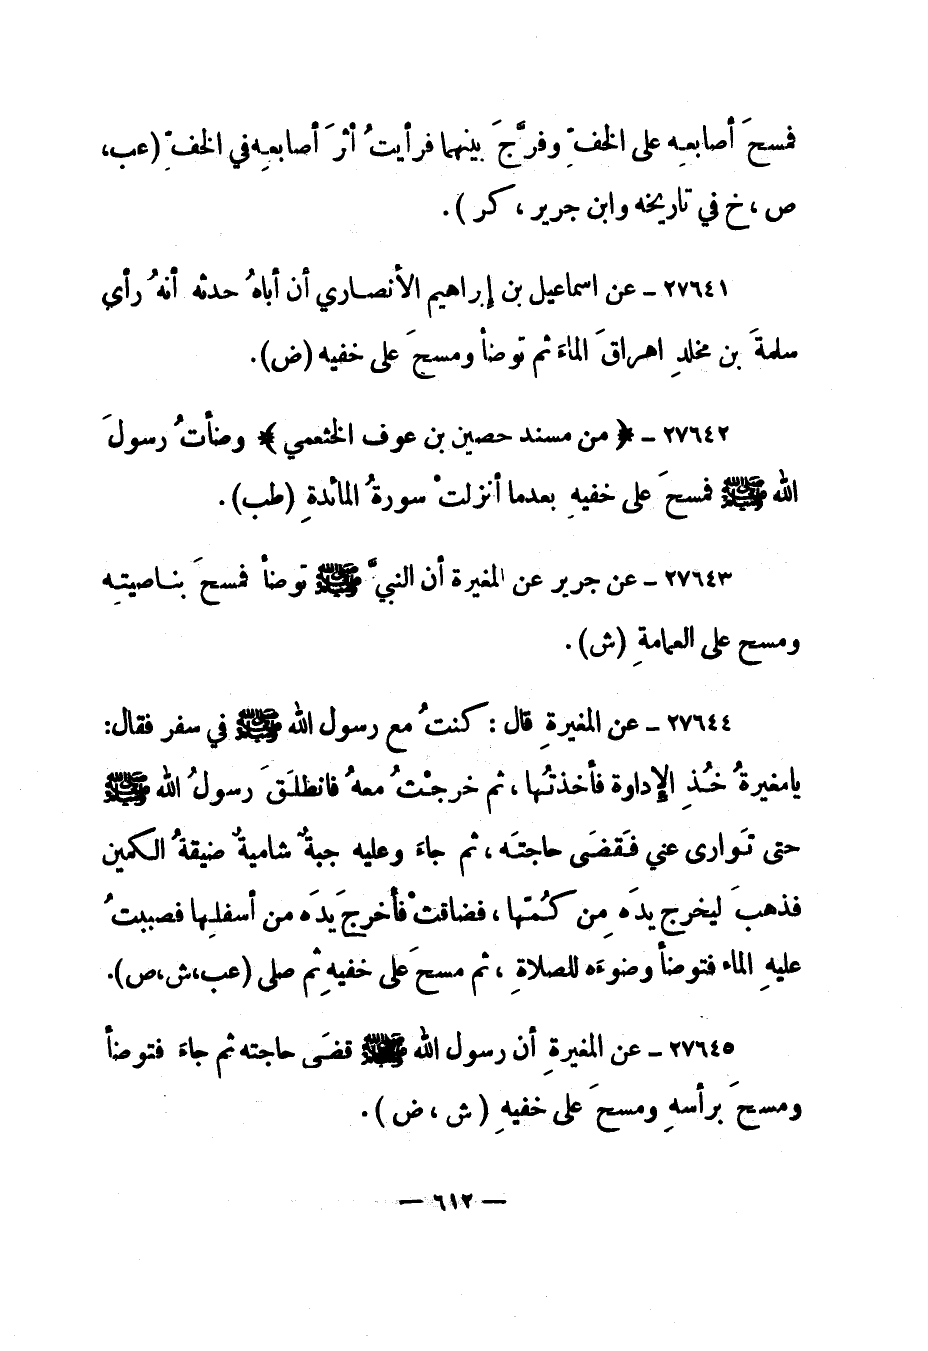 فمسحَ أصابعه على الخفِّ وفرَّجَ بينهما فرأيتُ أثرَ أصابعِه في الخفِّ (عب،
ص ، خ في تاريخه وابن جرير ، كر ) .
٢٧٦٤١ ــ عن اسماعيل بن إبراهيم الأنصاري أن أباهُ حدثه أنهُ رأى
سلمةَ بن مخلدِ اهراقَ الماءَ ثم توضأ ومسحَ على خفيه (ض).
٢٧٦٤٢ ــ ﴿ من مسند حصين بن عوف الخثعمي ﴾ وضأتُ رسولَ
الله ﷺ فمسحَ على خفيهِ بعدما أنزلتْ سورةُ المائدةِ (طب) .
٢٧٦٤٣ ــ عن جرير عن المغيرة أن النبيَّ ﷺ توضأ فمسحَ بناصيتهِ
ومسح على العمامةِ (ش) .
٢٧٦٤٤ ــ عن المغيرةِ قال : كنتُ مع رسول الله ﷺ في سفر فقال:
يامغيرةُ خُذِ الإداوة فأخذتُها ، ثم خرجْتُ معهُ فانطلَقَ رسولُ الله ﷺ
حتى تَوارى عني فَقضَى حاجتَه ، ثم جاءَ وعليه جبةٌ شاميةٌ ضيقةُ الكمين
فذهبَ ليخرج يدَه مِن كُمتّها ، فضاقتْ فأخرجَ يدَه من أسفلها فصببتُ
عليهِ الماء فتوضأ وضوءَه للصلاةِ ، ثم مسحَ على خفيهِ ثم صلى (عب،ش،ص).
٢٧٦٤٥ ــ عن المغيرةِ أن رسول الله ﷺ قضَى حاجته ثم جاءَ فتوضأ
ومسحَ برأسهِ ومسحَ على خفيهِ ( ش ، ض ) .
— ٦١٢ —